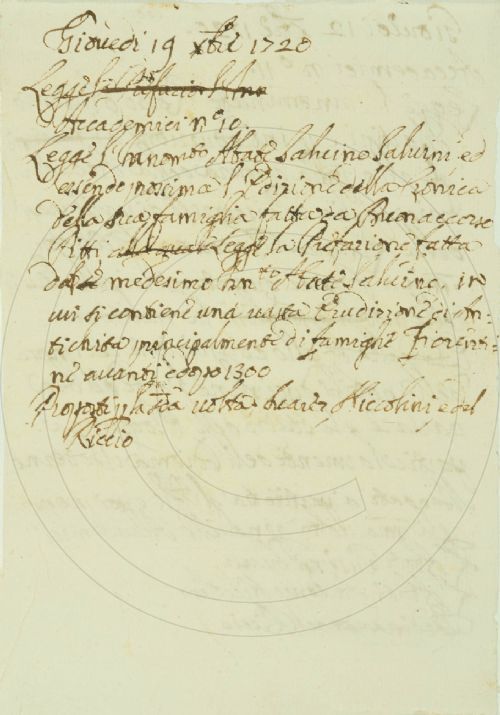 Giovedi 19 Xbre 1720
Legge si
Accademici n.º 10.
Legge l'Innom.to Abate Salvino Salvini ed
essendo prossima l'Edizione della Cronica
della sua famiglia fatta da Buonaccorso
Pitti legge la Prefazione fatta
da se medesimo Abate Salvino, in
cui si contiene una vasta Erudizione di An-
tichità principalmente di famiglie Fiorenti-
ne avanti e dopo 1300
Proposti p la volta Niccolini e del
Riccio